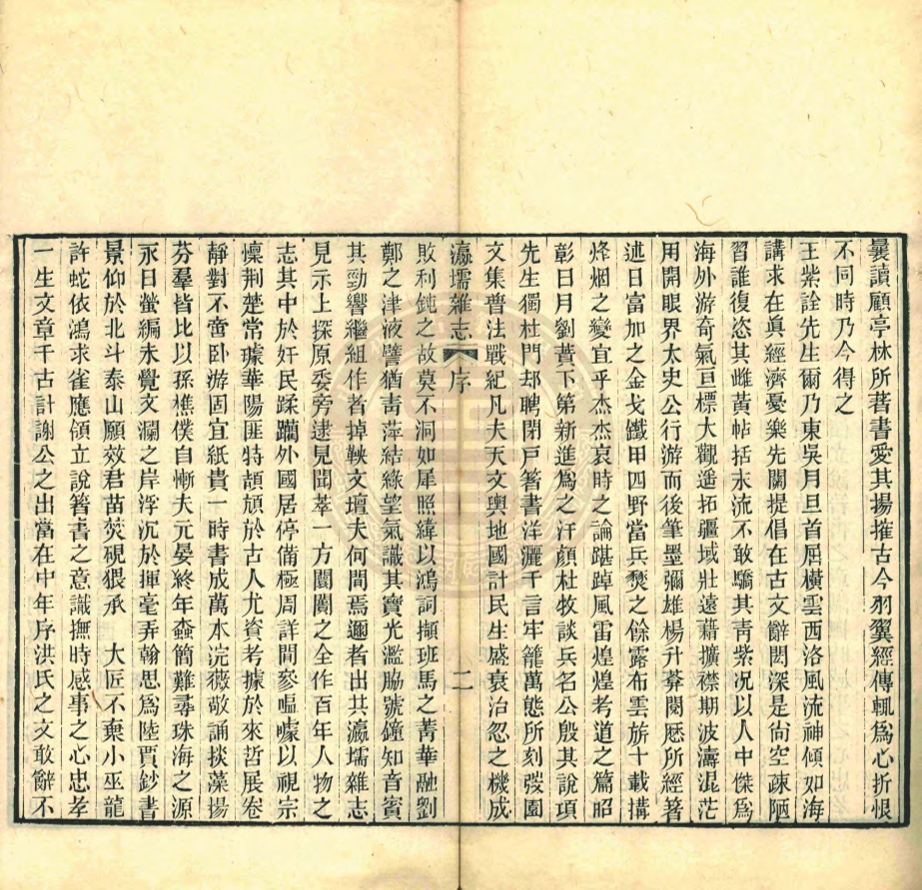 曩讀顧亭林所著書愛其揚搉古今羽翼經傳輒爲心折恨
不同時乃今得之
王紫詮先生爾乃東吳月旦首屈橫雲西洛風流神傾如海
講求在眞經濟憂樂先關提倡在古文辭閎深是尙空疎陋
習誰復恣其雌黃帖括末流不敢驕其靑紫况以人中傑爲
海外游奇氣亘標大觀遥拓疆域壯遠藉擴襟期波濤混茫
用開眼界太史公行游而後筆墨彌雄楊升菴閱歷所經著
述日富加之金戈鐵甲四野當兵燹之餘露布雲旂十載搆
烽烟之變宜乎杰杰哀時之論踸踔風雷煌煌考道之篇昭
彰日月劉蕡下第新進爲之汗顔杜牧談兵名公殷其說項
先生獨杜門却聘閉戶箸書洋灑千言牢籠萬態所刻弢園
文集曹法戰紀凡夫天文輿地國計民生盛衰治忽之機成
瀛壖雜志 序 二
敗利鈍之故莫不洞如犀照緯以鴻詞擷班馬之菁華融劉
鄭之津液譬猶靑萍結綠望氣識其寶光濫脇號鐘知音賓
其勁響繼組作者掉鞅文壇夫何間焉邇者出其瀛壖雜志
見示上探原委旁逮見聞萃一方闤闠之全作百年人物之
志其中於奸民蹂躪外國居停備極周詳間參嘔噱以視宗
懔荆楚常璩華陽匪特頡頏於古人尤資考據於來哲展卷
靜對不啻卧游固宜紙貴一時書成萬本浣薇敬誦掞藻揚
芬羣皆比以孫樵僕自慚夫元晏終年蠹簡難尋珠海之源
永日螢編未覺文瀾之岸浮沉於揮毫弄翰思爲陸賈鈔書
景仰於北斗泰山願效君苗焚硯猥承 大匠不棄小巫龍
許蛇依鴻求雀應領立說箸書之意識撫時感事之心忠孝
一生文章千古計謝公之出當在中年序洪氏之文敢辭不